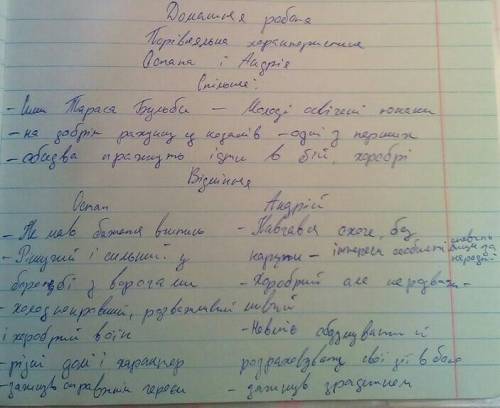 Домашня робота
Порівняльна характеристика
Остапа і Андрія
Спільне:
- Сини Тараса Бульби - Молоді освічені юнаки
- на добрім рахунку у козаків - одні з перших
- обидва прагнуть іти в бій, хоробрі
Відмінне
Остап Андрій
- Не мав бажання вчитись - Навчався охоче, без
- Рішучий і сильний у напруги - інтереси особисті
боротьбі з ворогами - Хоробрий але нерозваж-
- холоднокровний, розважливий ливий
і хоробрий воїн - Невмів обдумувати й
- різні долі і характер розраховувати свої дії в бою
- загинув справжнім героєм - загинув зрадником